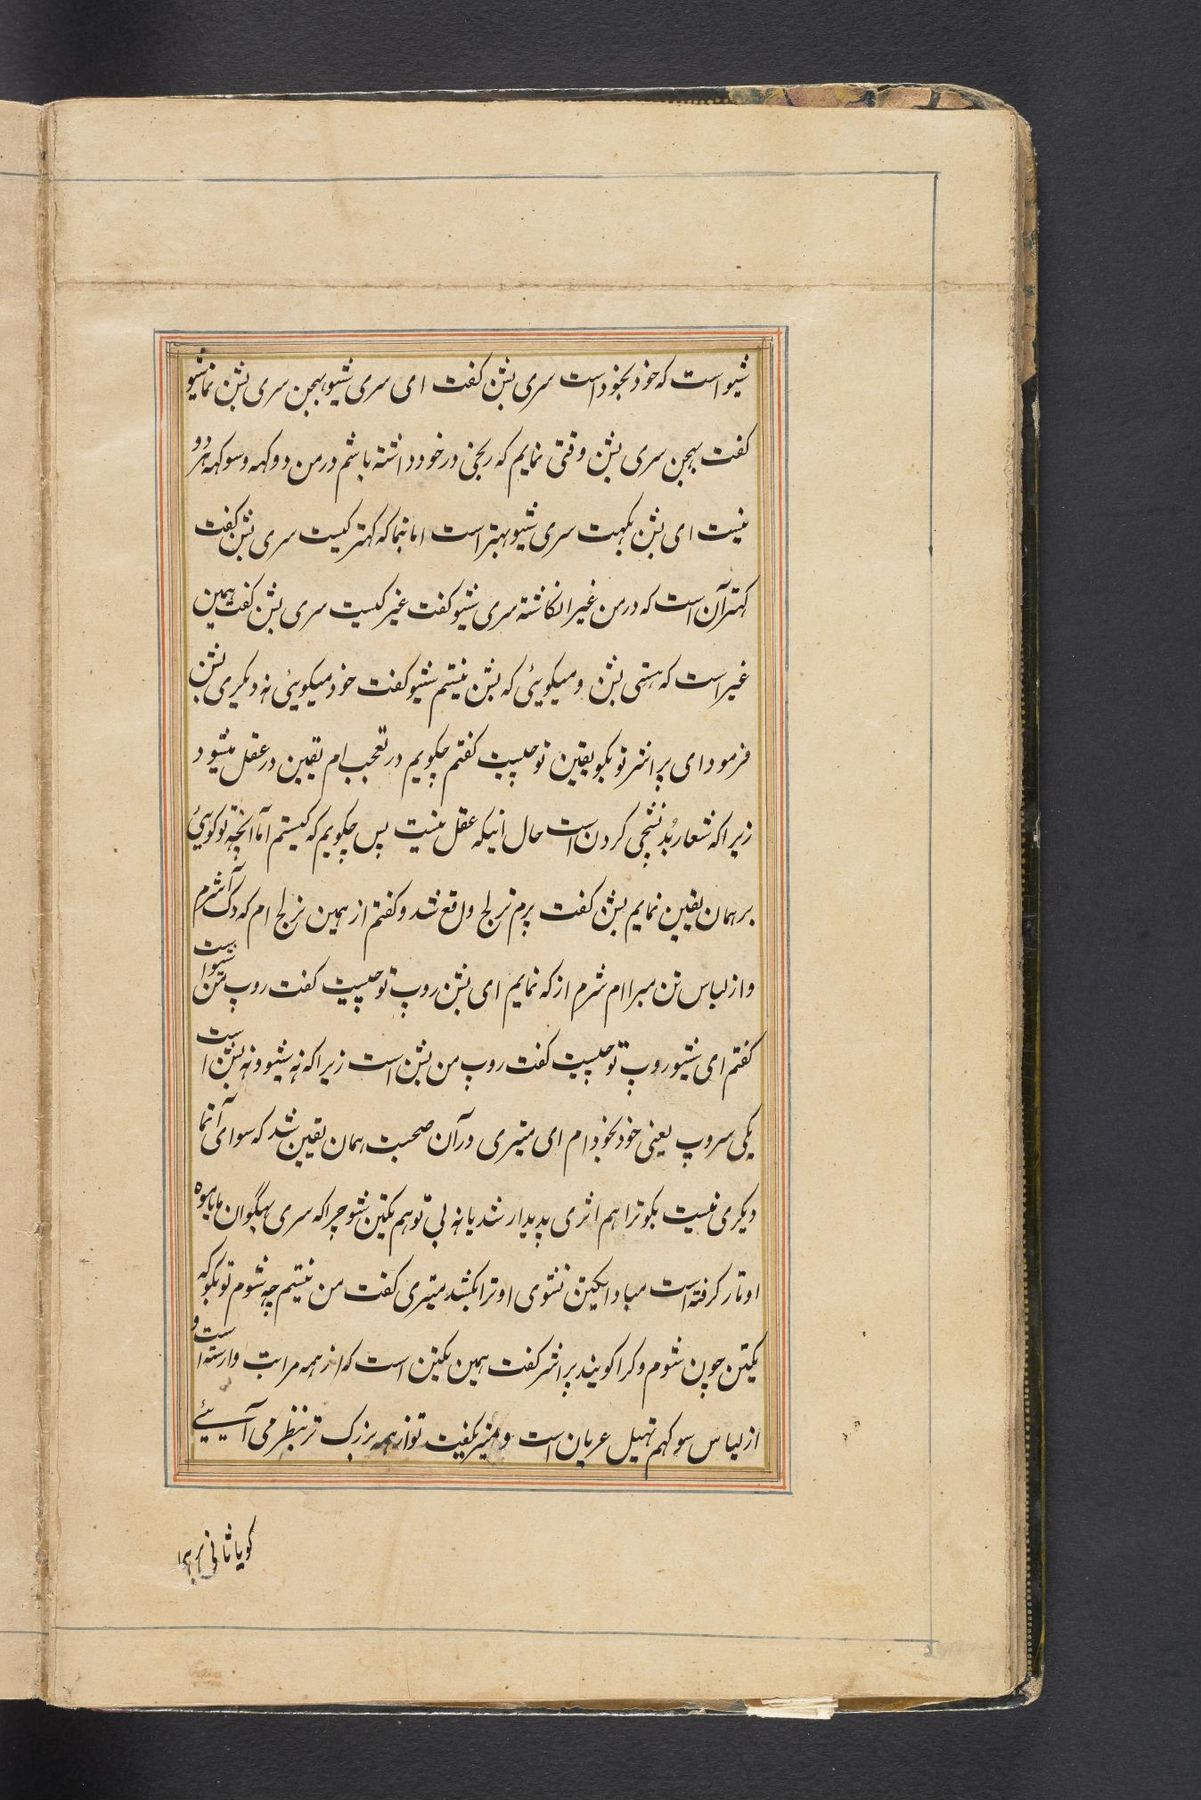 شیو است که خود بخود است سری بشن گفت ای سری شیو بهجن سری بشن نما شیو
گفت بهجن سری بشن وقتی نمایم که رنجی در خود داشته باشم در من دوکهه و سوکهه هر دو
نیست ای بشن بگهت سری شیو بهتر است اما بنما که کهتر کیست سری بشن گفت
کهتر آن است که در من غیر انگاشته سری شیو گفت غیر کیست سری بشن گفت همین
غیر است که هستی بشن و میگوییٔ که بشن نیستم شیو گفت خود میگوییٔ نه دیگری بشن
فرمود ای پراشر تو بگو یقین تو چیست گفتم چگویم در تعجب ام یقین در عقل میشود
زیراکه شعار بُد نشچی کردن است حال اینکه عقل نیست پس چگویم که کیستم اما آنچه تو گوییٔ
بر همان یقین نمایم بشن گفت پرم نرلج واقع شد و گفتم از همین نرلج ام که دک آشرم
و از لباس تن مبرا ام شرم از که نمایم ای بشن روپ تو چیست گفت روپ من شیو است
گفتم ای شیو روپ تو چیست گفت روپ من بشن است زیراکه نه شیو و نه بشن است
یکی سروپ یعنی خود بخود ام ای میتری در آن صحبت همان یقین شد که سوای آتما
دیگری نیست بگو ترا هم اثری پدیدار شد یا نه بی توهم یکتن شو چراکه سری بهگوان باباهوه
اوتار گرفته است مبادا یکتن نشوی او ترا بکشد میتری گفت من نیستم چه شوم تو بگو که
یکتن چون شوم و کرا گویند پراشر گفت همین یکتن است که از همه مراتب وارسته است و
از لباس سوکهم تهیل عریان است و میر گفت تو از همه بزرگ تر بنظر می آییٔ
گویا ثانی برهما